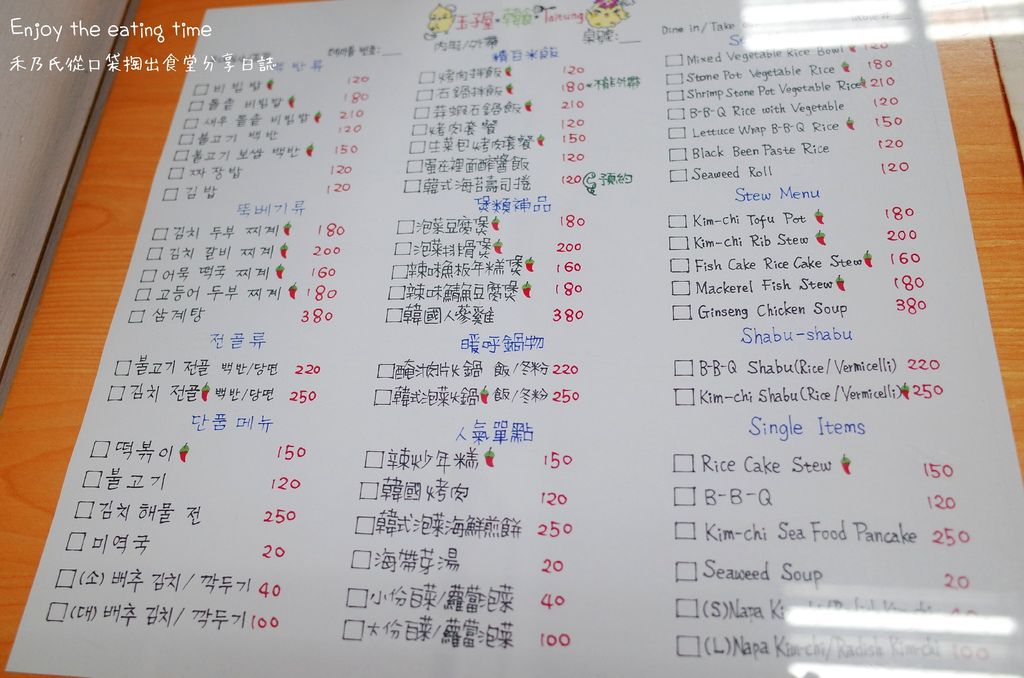 Enjoy the eating time
禾乃氏從口袋掏出食堂分享日誌
Taitung
테이블 번호:
內用/外帶
桌號:
Dine in/ Take
백 반 류
□ 비 빔 밥 120
□ 돌솥 비빔밥 180
□ 새우 돌솥 비빔밥 210
□ 불고기 백반 120
□ 불고기 보쌈 백반 150
□ 짜장밥 120
□ 김밥 120
뚝배기류
□ 김치 두부 찌게 180
□ 김치 갈비 찌게 200
□ 어묵 떡국 찌게 160
□ 고등어 두부 찌게 180
□ 삼계탕 380
전골류
□ 불고기 전골 백반/당면 220
□ 김치 전골 백반/당면 250
단품 메뉴
□ 떡볶이 150
□ 불고기 120
□ 김치 해물 전 250
□ 미역국 20
□ (소) 배추 김치/ 깍두기 40
□ (대) 배추 김치/ 깍두기 100
精百米飯
□ 烤肉拌飯 120
□ 石鍋拌飯 180 *積外帶
□ 蒜蝦石鍋飯 210
□ 烤肉套餐 120
□ 生菜包烤肉套餐 150
□ 蛋在裡面醡醬飯 120
□ 韓式海苔壽司捲 120 預約
煲類補品
□ 泡菜豆腐煲 180
□ 泡菜排骨煲 200
□ 辣味魚板年糕煲 160
□ 辣味鯖魚豆腐煲 180
□ 韓國人蔘雞 380
暖呼鍋物
□ 醃汁肉片火鍋 飯/冬粉 220
□ 韓式泡菜火鍋 飯/冬粉 250
人氣單點
□ 辣炒年糕 150
□ 韓國烤肉 120
□ 韓式泡菜海鮮煎餅 250
□ 海帶芽湯 20
□ 小份白菜/蘿蔔泡菜 40
□ 大份白菜/蘿蔔泡菜 100
□ Mixed Vegetable Rice Bowl 120
□ Stone Pot Vegetable Rice 180
□ Shrimp Stone Pot Vegetable Rice 210
□ B-B-Q Rice with Vegetable 120
□ Lettuce Wrap B-B-Q Rice 150
□ Black Been Paste Rice 120
□ Seaweed Roll 120
Stew Menu
□ Kim-chi Tofu Pot 180
□ Kim-chi Rib Stew 200
□ Fish Cake Rice Cake Stew 160
□ Mackerel Fish Stew 180
□ Ginseng Chicken Soup 380
Shabu-shabu
□ B-B-Q Shabu(Rice/Vermicelli) 220
□ Kim-chi Shabu(Rice/Vermicelli) 250
Single Items
□ Rice Cake Stew 150
□ B-B-Q 120
□ Kim-chi Sea Food Pancake 250
□ Seaweed Soup 20
□ (S)Napa Kim-chi/Radish Kim-chi 40
□ (L)Napa Kim-chi/Radish Kim-chi 100